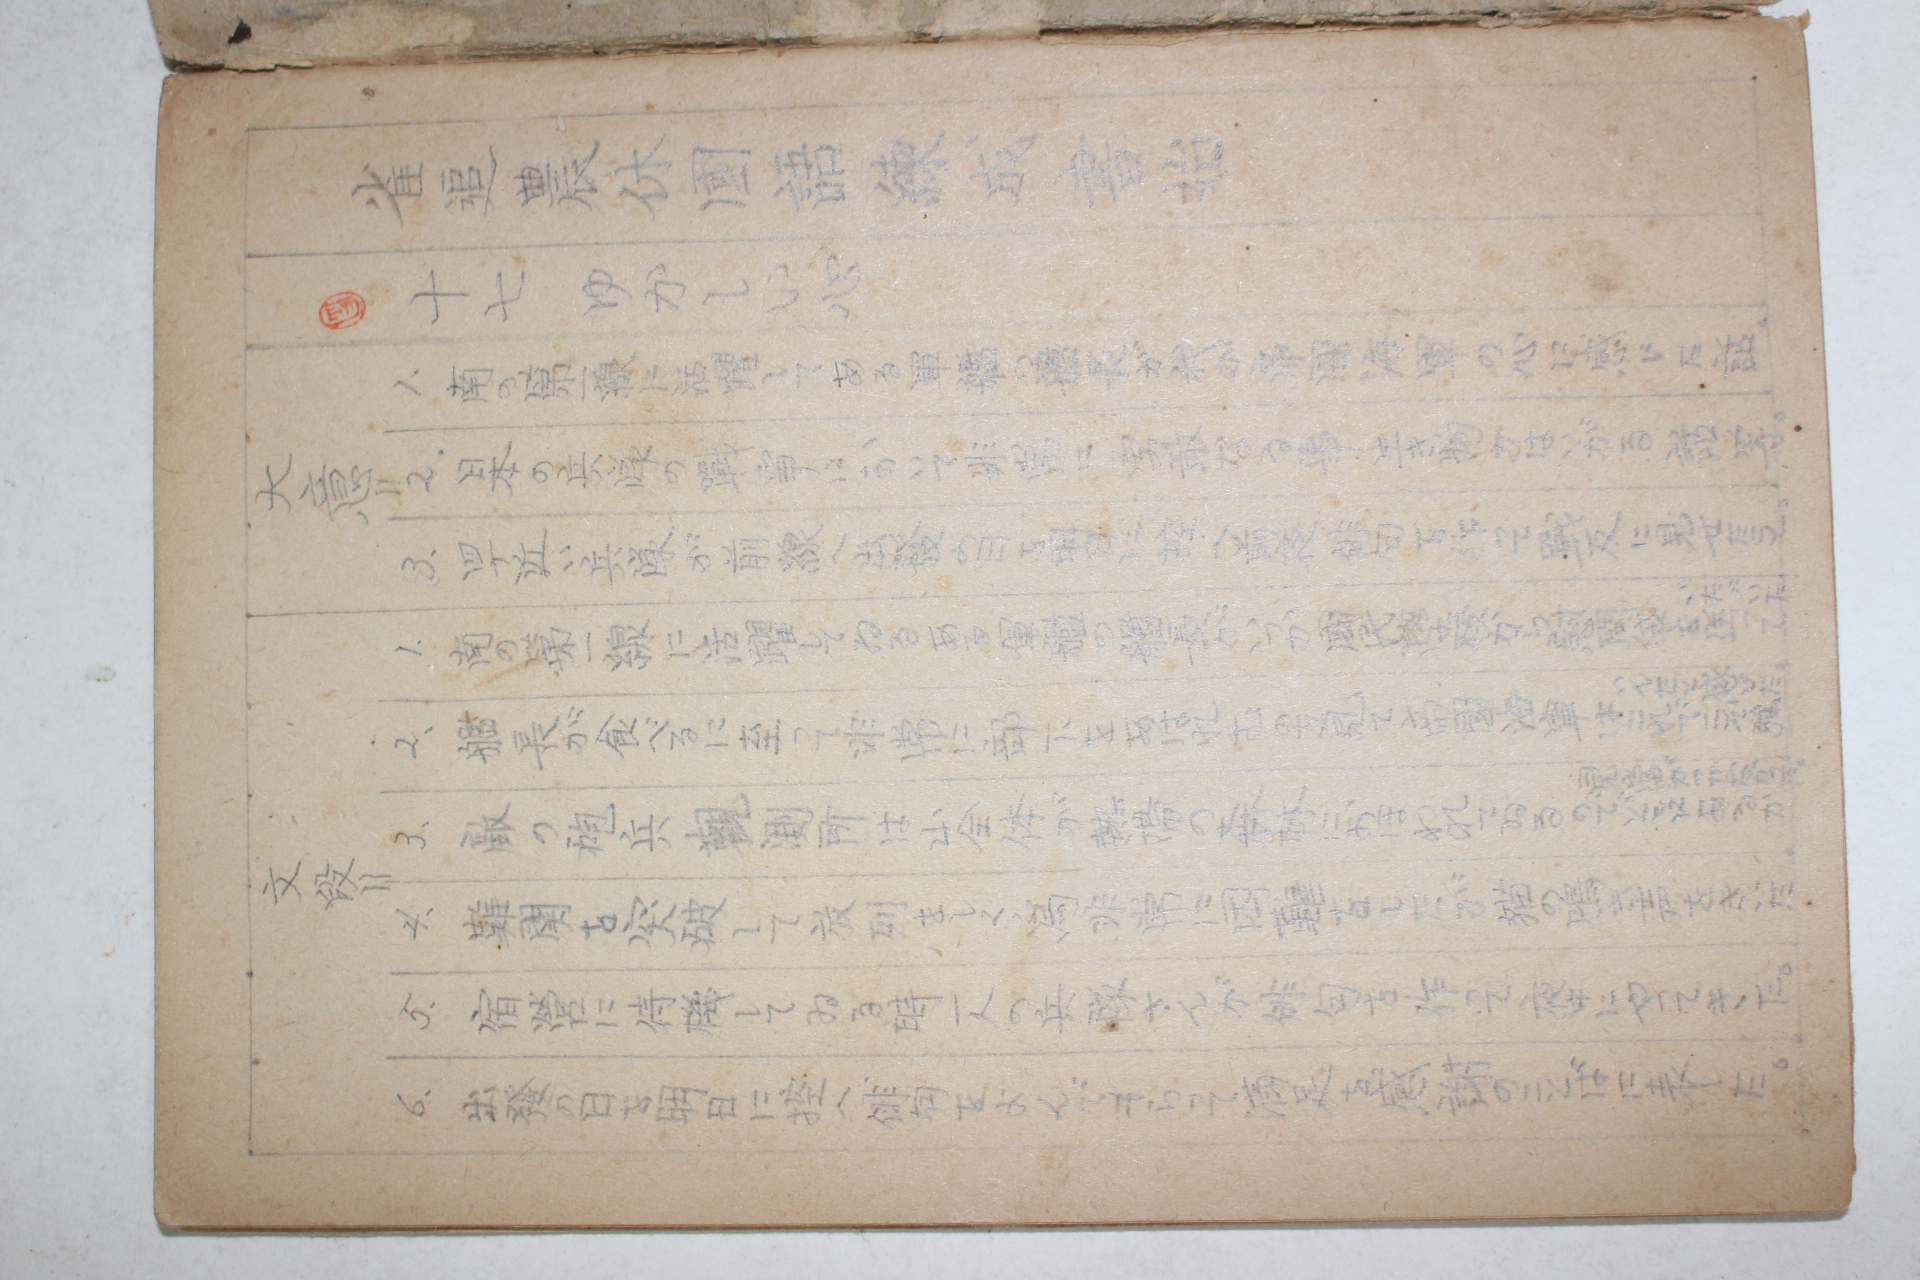 雀追農休國語練成書始
十七 ゆかしい心
大意=
1. 南の第一線に活躍してある軍艦の艦長が我が帝國海軍の心に感じた話。
2. 日本の兵隊の戰爭において非常に勇敢なる事と生き物かはいがる話等。
3. 四十近い兵隊が前線へ出發の日を明日に控へ前夜俳句を作って戰友に見せたこと。
文段=
1. 南の第一線に活躍してゐるある軍艦の艦長がいつか國民學校から慰問袋を送って
いたゞいた
2、艦長が食べるに至って非常に部下をあはれむの見て帝國海軍はこれでこそ強
いやだと感じた。
3、敵の砲兵觀測所は山全体が熱帶の森林におほわれてゐるのでどこにあるか
見當がつかなかった。
4、難関を突破して放列をしく爲非常に困難をしたが猫の鳴き声をきいた
5、宿営に待機してゐる時一人の兵隊さんが俳句を作って夜中にやってきた。
6、出發の日を明日に控へ俳句をよんでもらって滿足を感謝のことばに表した。